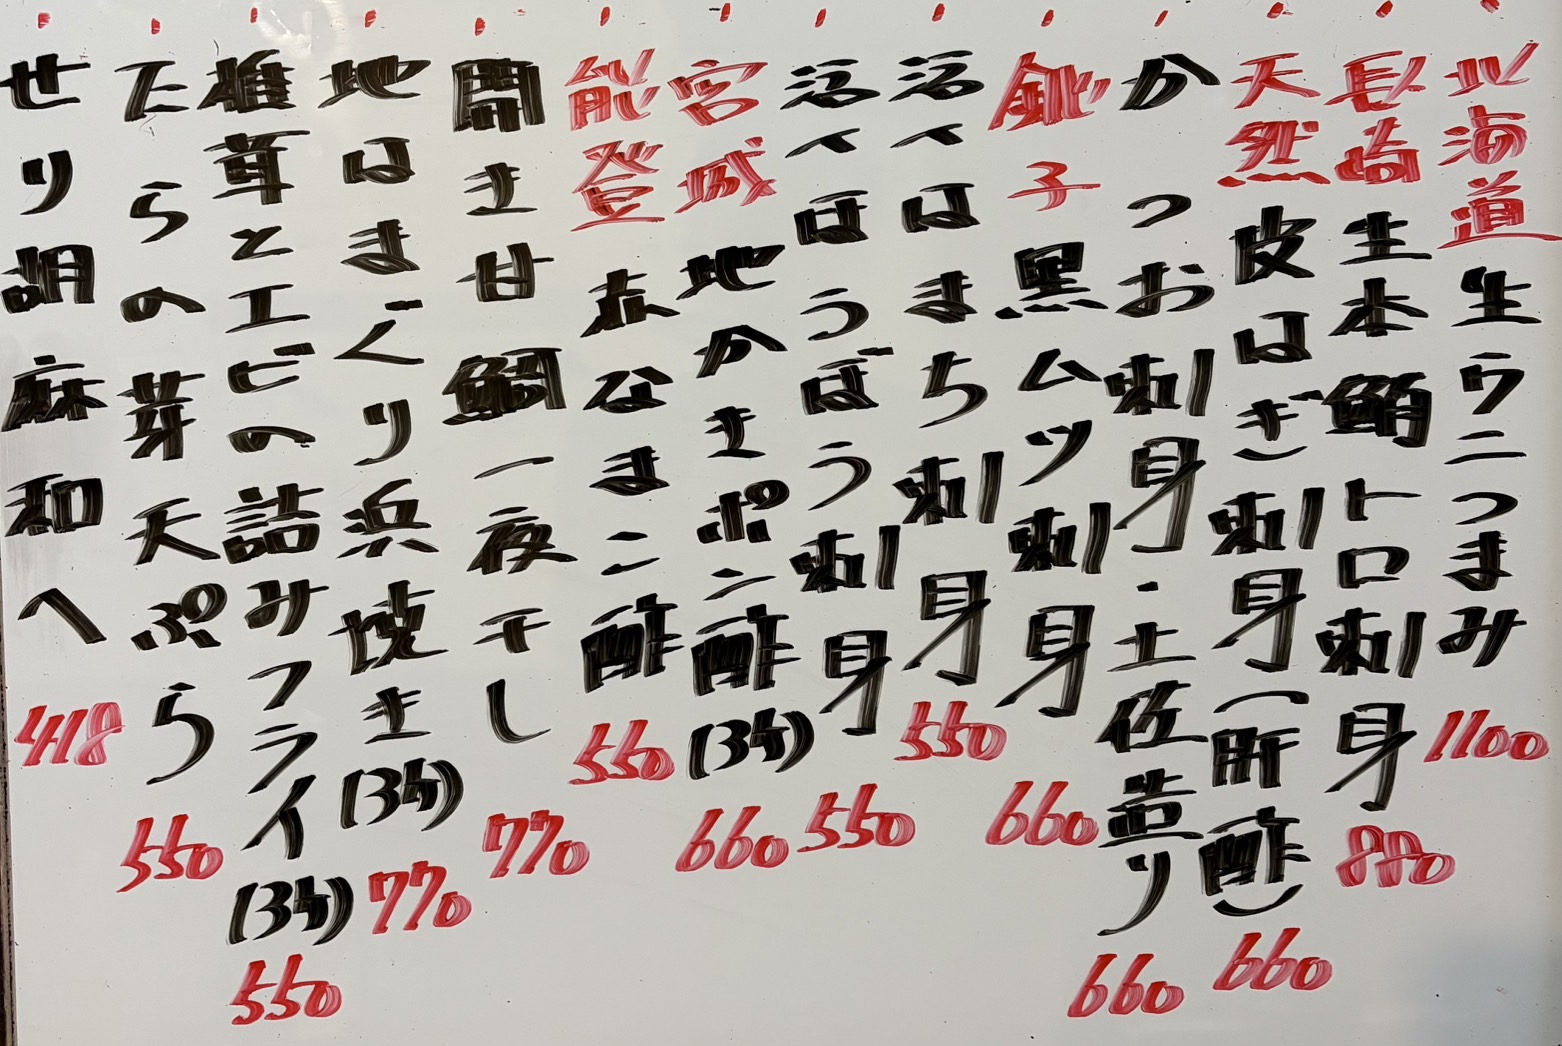 北海道生ウニつまみ 1100
長崎生本鮪トロ刺身 880
天然皮はぎ刺身(肝酢) 660
かつお刺身・土佐造り 660
銚子黒ムツ刺身 660
活〆はまち刺身 550
活〆ほうぼう刺身 550
宮城地かきポン酢(3ケ) 660
能登赤なまこ酢 550
開き甘鯛一夜干し 770
地はまぐり浜焼き(3ケ) 770
椎茸とエビの詰みフライ(3ケ) 550
たらの芽天ぷら 550
せり胡麻和へ 418